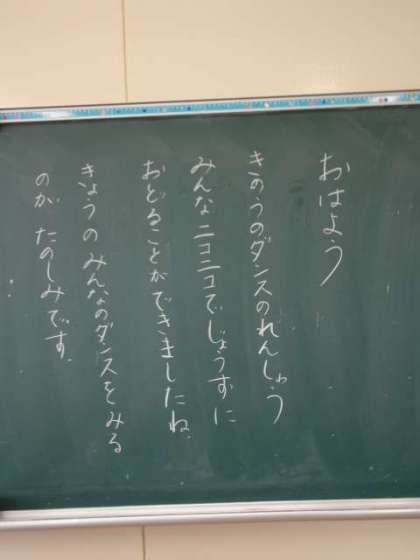 おはよう
きのうのダンスのれんしゅう
みんなニコニコでじょうずに
おどることができましたね。
きょうのみんなのダンスをみる
のが たのしみです。